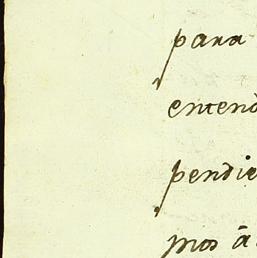 para
entend
pendie
mos â